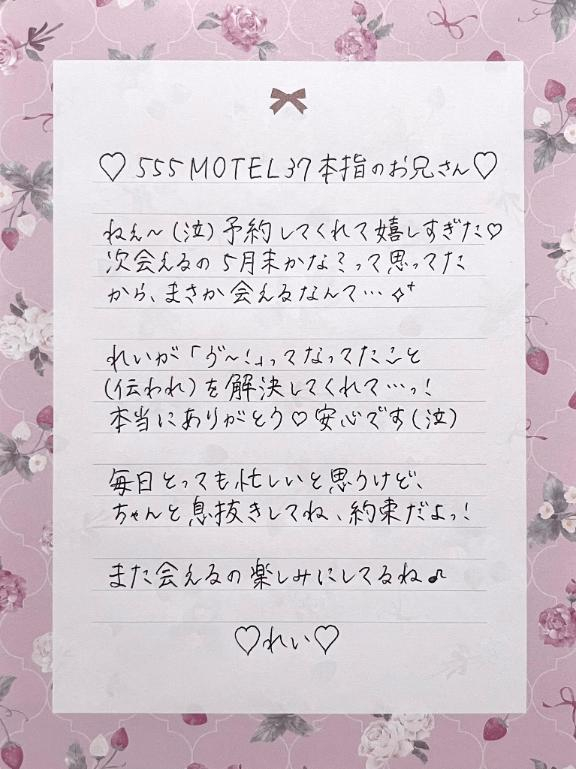 ♡555MOTEL37本指のお兄さん♡
ねぇ〜(泣)予約してくれて嬉しすぎた♡
次会えるの5月末かな?って思ってた
から、まさか会えるなんて…✧⁺
れいが「ゔ〜!」ってなってたこと
(伝われ)を解決してくれて…っ!
本当にありがとう♡安心です(泣)
毎日とっても忙しいと思うけど、
ちゃんと息抜きしてね、約束だよっ!
また会えるの楽しみにしてるね♪
♡れい♡